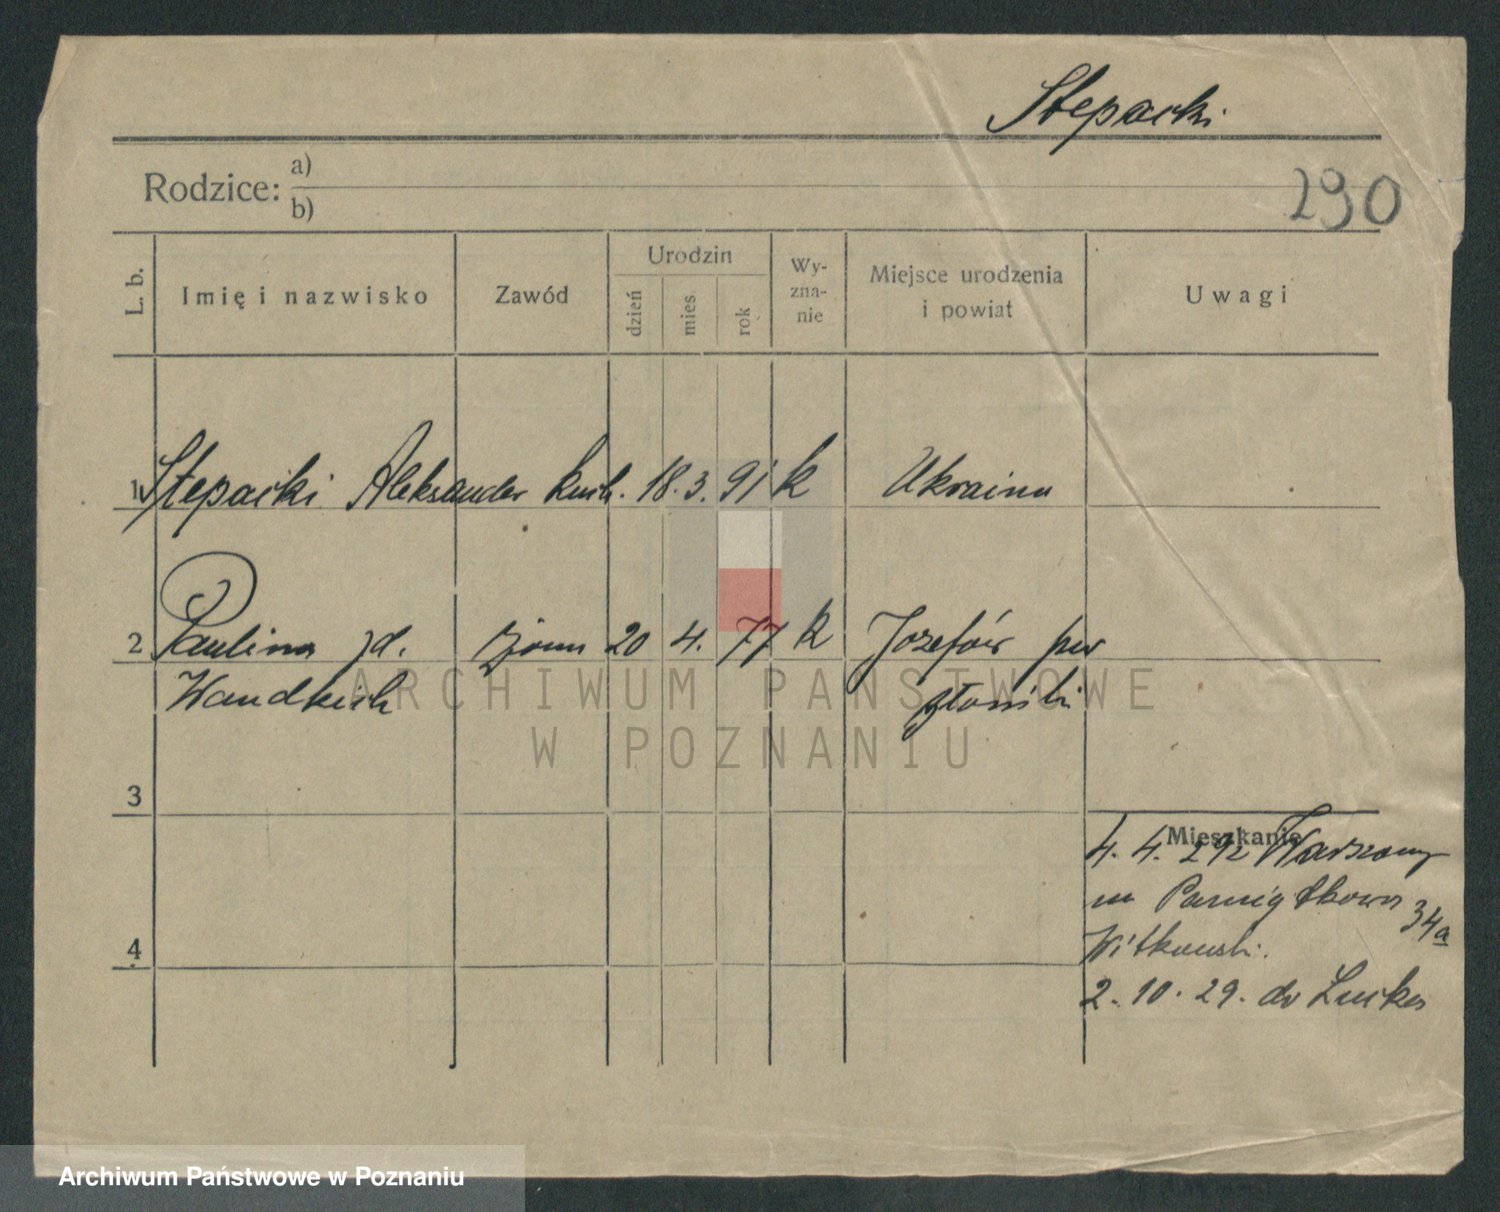 Stepacki
290
Rodzice: a)
b)
L. b.
Imię i nazwisko
Zawód
Urodzin
dzień
mies
rok
Wy-
zna-
nie
Miejsce urodzenia
i powiat
Uwagi
1 Stepacki Aleksander kuch. 18. 3. 91 k Ukraina
2 Paulina zd. żona 20 4. 77 k Józefów pow
Wandkich
ARCHIWUM PAŃSTWOWE
W POZNANIU
3
Mieszkanie
4. 4. Warszawy
Pamiątkowa 34a
Witkowski.
4
2. 10. 29. do Łucka
Archiwum Państwowe w Poznaniu